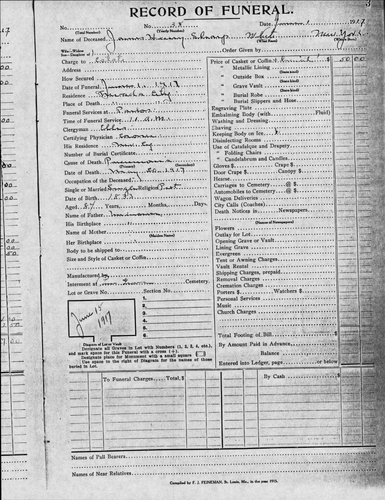 RECORD OF FUNERAL.
No.
(Total Number)
No. 38
(Yearly Number)
Date, June 1 1917
Name of Deceased, James Henry Sharp White New York
Order Given by
Charge to Estate
Address
How Secured
Date of Funeral June 1, 1917
Residence City
Place of Death
Funeral Services at Parlor
Time of Funeral Service 11 A.M.
Clergyman Ellis
Certifying Physician
His Residence City
Number of Burial Certificate
Cause of Death Pneumonia
Date of Death May 30 1917
Occupation of the Deceased
Single or Married Single Religion Prot
Date of Birth 1833
Aged 84 Years, Months, Days.
Name of Father Unknown
His Birthplace "
Name of Mother "
Her Birthplace "
(Maiden Name)
Body to be shipped to
Size and Style of Casket or Coffin
Manufactured by
Interment at Cemetery.
Lot or Grave No. Section No.
1.
2.
3.
4.
5.
6.
June 1 1917
Diagram of Lot or Vault
Designate all Graves in Lot with Numbers (1, 2, 3, 4, etc.),
and mark space for this Funeral with a cross (+).
Designate place of Monument with a small square
Use space to the right of Diagram for the names of those
buried in Lot.
Price of Casket or Coffin 50 00
" Metallic Lining
(State kind)
" Outside Box
(State kind)
" Grave Vault
(State kind)
" Burial Robe
(State kind)
" Burial Slippers and Hose
Engraving Plate
Embalming Body (with Fluid)
Washing and Dressing
Shaving
Keeping Body on Ice
Disinfecting Rooms
Use of Catafalque and Drapery
" Folding Chairs
" Candelabrum and Candles
Gloves $ Crape $
Door Crape $ Canopy $
Hearse
Carriages to Cemetery @ $
Automobiles to Cemetery @ $
Wagon Deliveries
City Calls (Coaches)
Death Notices in Newspapers.
(Names of Newspapers)
Flowers
Outlay for Lot
Opening Grave or Vault
Lining Grave
Evergreen
Tent or Awning Charges
Vault Rental
Shipping Charges, prepaid
Removal Charges
Cremation Charges
Porters $ Watchers $
Personal Services
Music
Church Charges
Total Footing of Bill
By Amount Paid in Advance
Balance
Entered into Ledger, page or below
To Funeral Charges Total, $
By Cash $
Names of Pall Bearers
Names of Near Relatives
Compiled by F. J. FEINEMAN, St. Louis, Mo., in the year 1913.